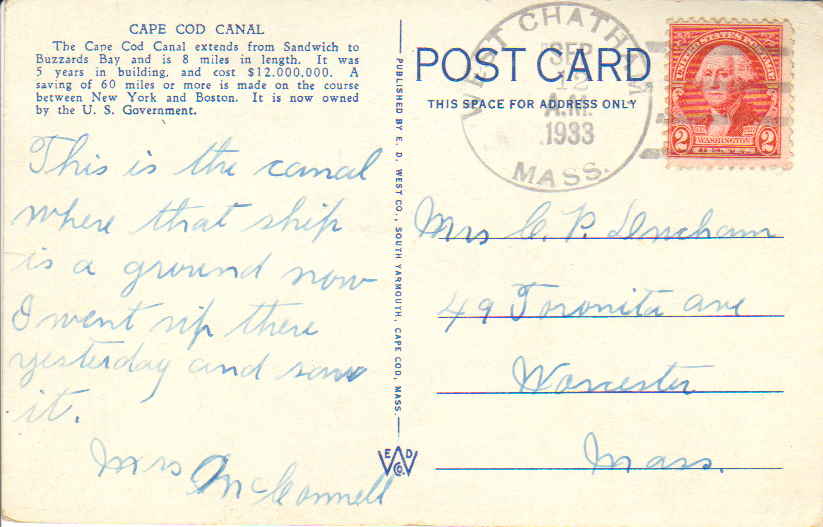 CAPE COD CANAL
The Cape Cod Canal extends from Sandwich to
Buzzards Bay and is 8 miles in length. It was
5 years in building, and cost $12.000,000. A
saving of 60 miles or more is made on the course
between New York and Boston. It is now owned
by the U. S. Government.
This is the canal
where that ship
is a ground now
I went up there
yesterday and saw
it.
Mrs McConnell
PUBLISHED BY E. D. WEST CO., SOUTH YARMOUTH, CAPE COD, MASS.
E D
W
CO.
POST CARD
THIS SPACE FOR ADDRESS ONLY
WEST CHATHAM
SEP
12
A.M.
1933
MASS.
UNITED STATES POSTAGE
2 WASHINGTON 2
Mrs C. P.
49 ave
Worcester
Mass.